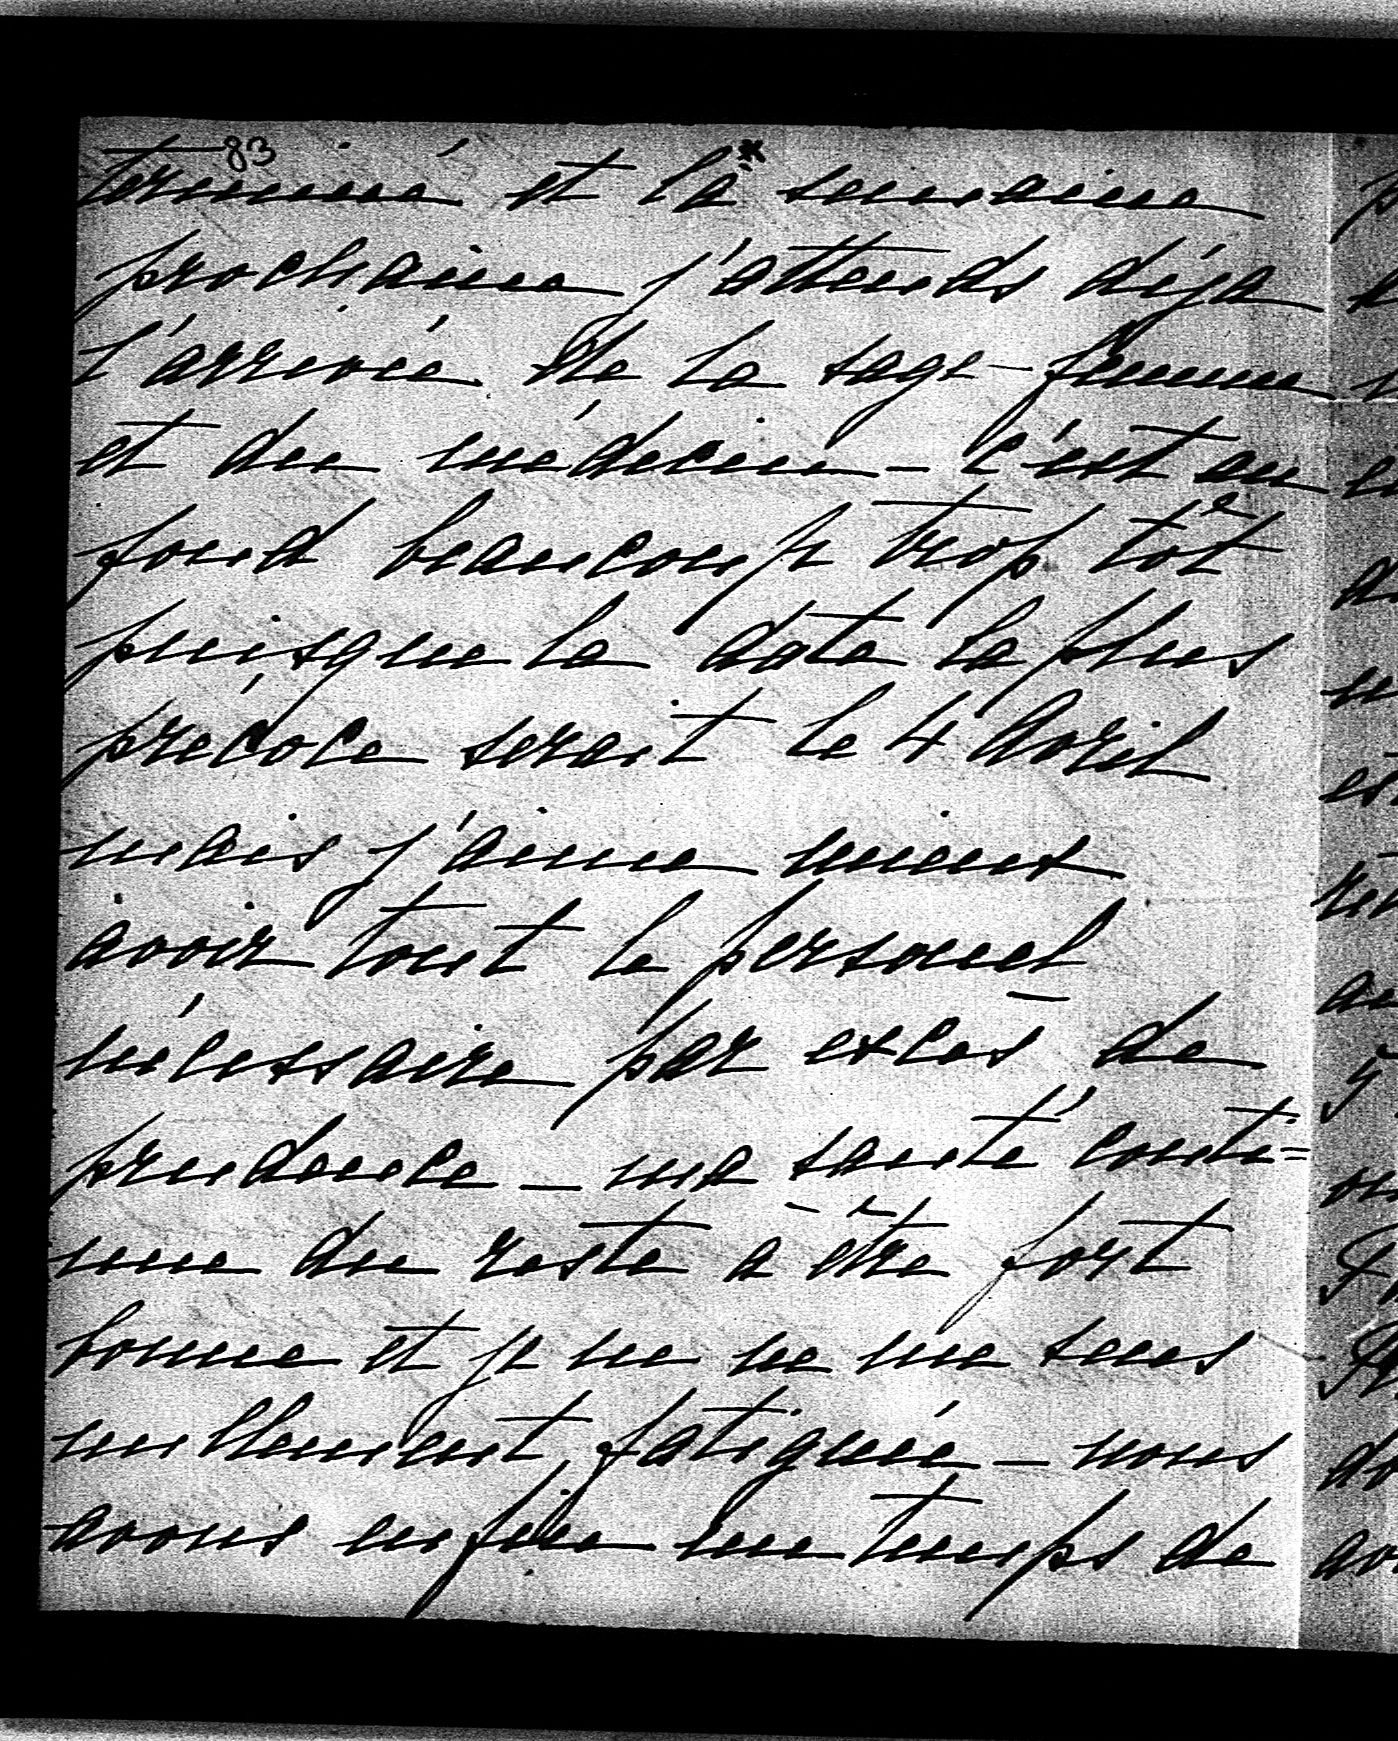 83
terminé et la* semaine
prochaine j'attends déja
l'arrivée de la sage-femme
et du médecin – c'est au
fond beaucoup trop tôt
puisque la date la plus
précoce serait le 4 Avril
mais j'aime mieux
avoir tout le personel
nécessaire par excès de
prudence – ma santé conti=
nue du reste a être fort
bonne et je ne me sens
nullement fatiguée – nous
avons enfin un temps de